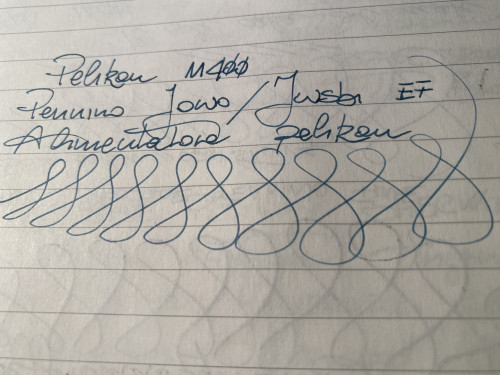 Pelikan M400
Pennino Jowo/Jwsbi EF
Alimentatore pelikan